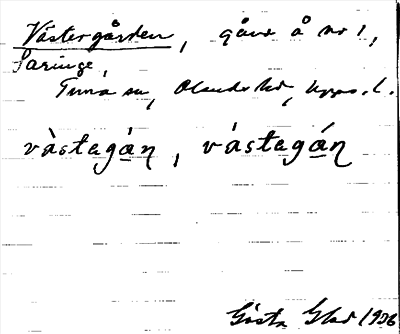 Västergården, gård å nr 1,
Åaringe,
Tuna sn, Olands hd, Upps. l.
vàstegán, vástegán
Gösta Glad 1936